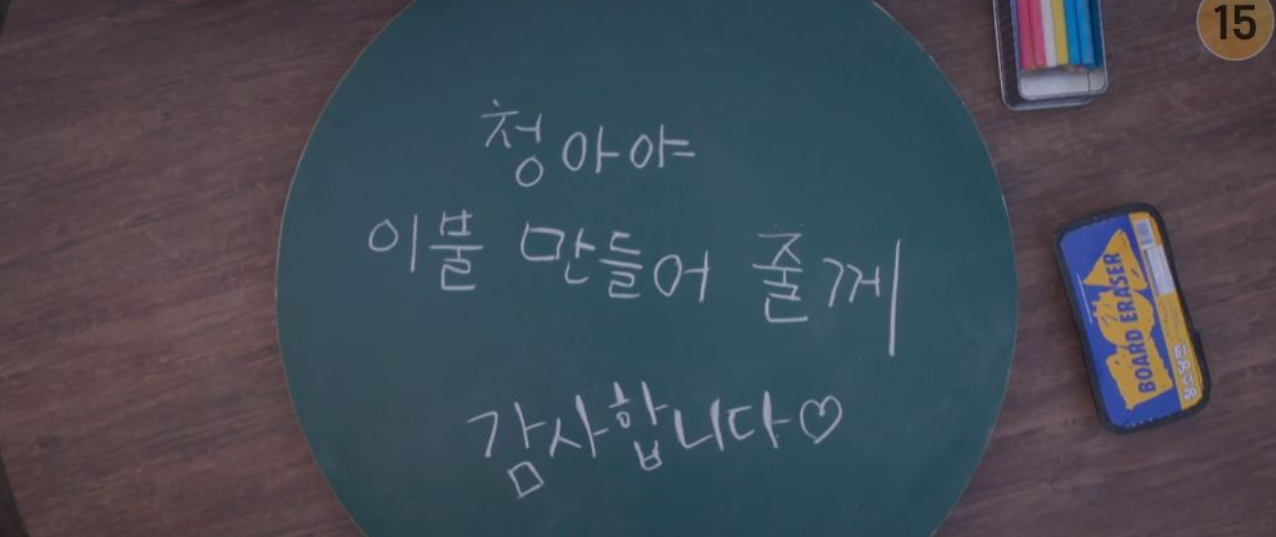 15
청아야
이불 만들어 줄께
감사합니다♡
BOARD ERASER